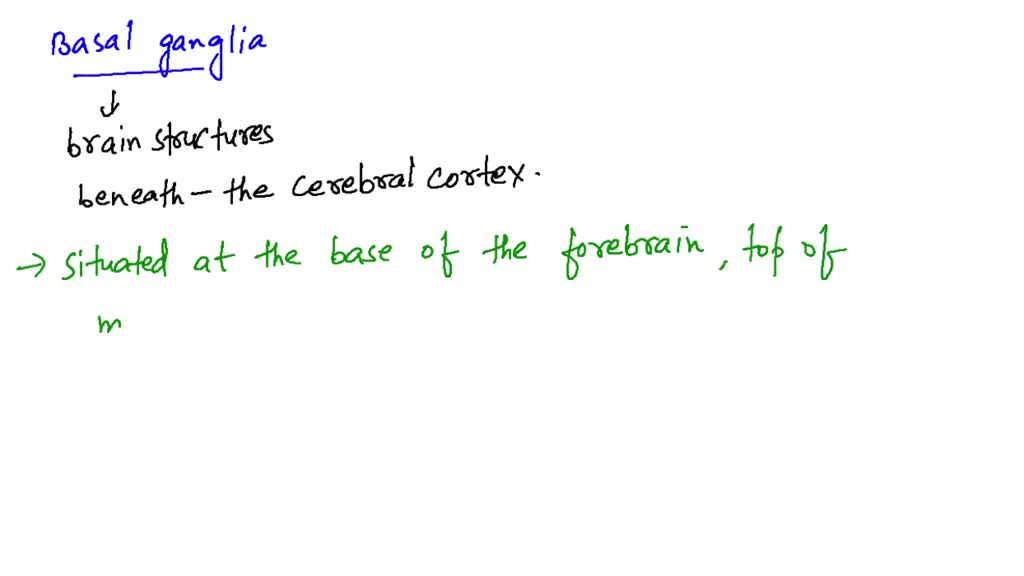 Basal ganglia
↓
brain structures
beneath - the cerebral cortex.
→ situated at the base of the forebrain, top of
m